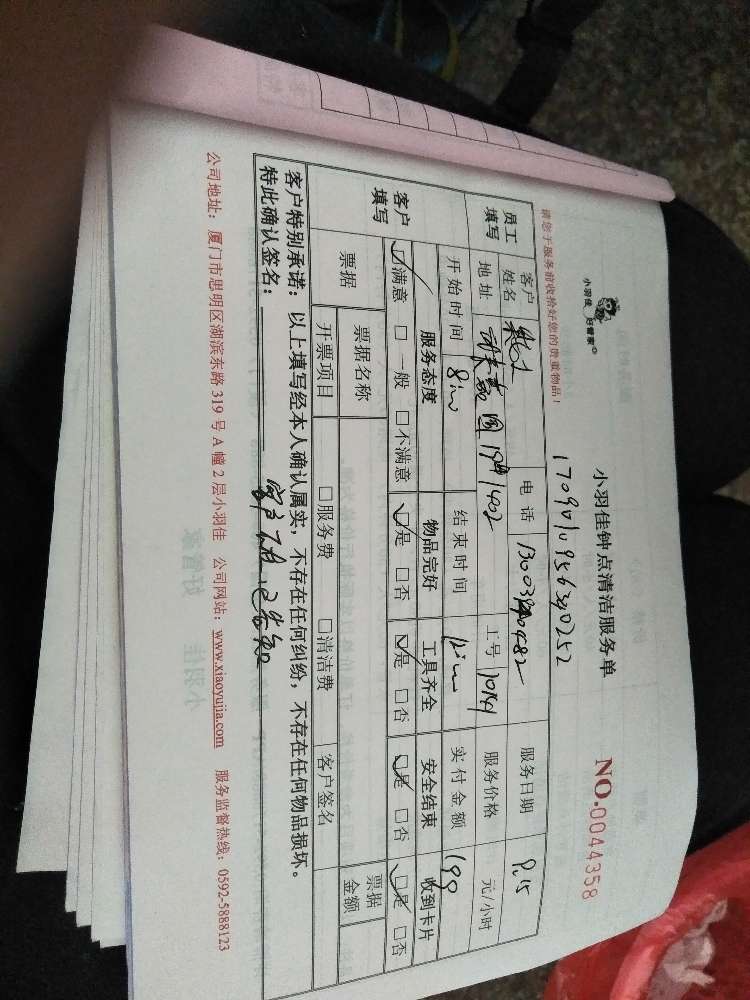 小羽佳 好管家
小羽佳钟点清洁服务单
NO.0044358
请您于服务前收拾好您的贵重物品！
1709010956390252
员工填写 客户姓名 电话 服务日期 9.15
地址 1402 工号 10141 服务价格 元/小时
开始时间 结束时间 实付金额 199
客户填写 服务态度 物品完好 工具齐全 安全结束 收到卡片
☑满意 □一般 □不满意 ☑是 □否 ☑是 □否 ☑是 □否 ☑是 □否
票据 票据名称 □服务费 □清洁费 客户签名 票据金额
开票项目
客户特别承诺：以上填写经本人确认属实，不存在任何纠纷，不存在任何物品损坏。
特此确认签名：
公司地址：厦门市思明区湖滨东路 319 号 A 幢 2 层小羽佳 公司网站：www.xiaoyujia.com 服务监督热线：0592-5888123